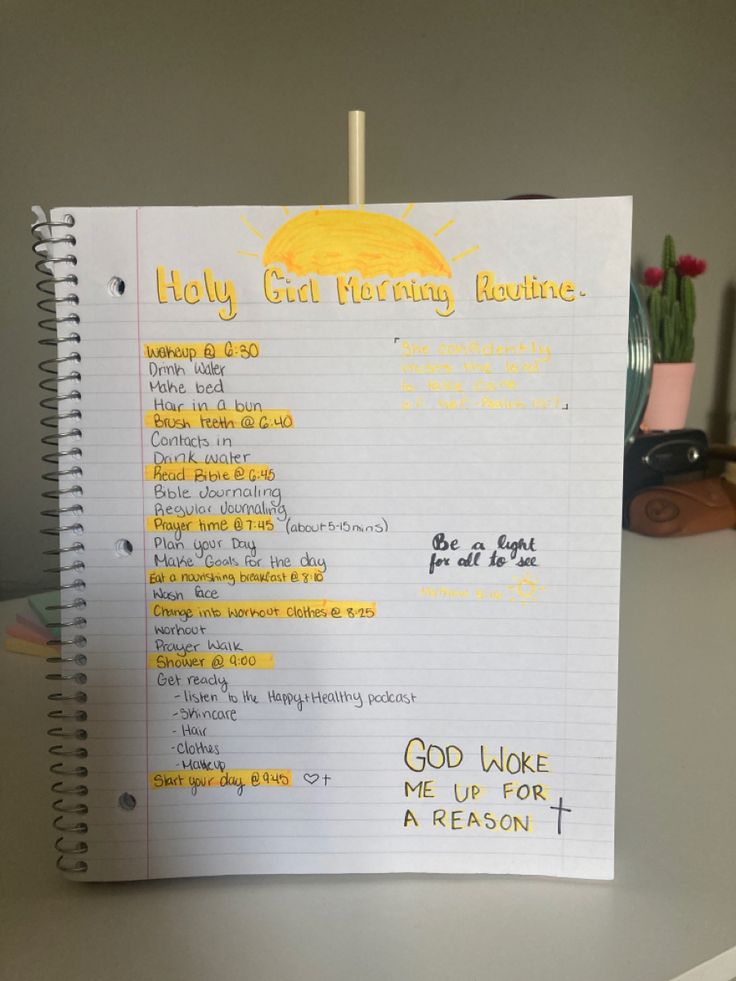 Holy Girl Morning Routine.
Wakeup @ 6:30
Drink Water
Make bed
Hair in a bun
Brush teeth @ 6:40
Contacts in
Drink water
Read Bible @ 6:45
Bible Journaling
Regular Journaling
Prayer time @ 7:45 (about 5-15 mins)
Plan your Day
Make Goals for the day
Eat a nourishing breakfast @ 8:10
Wash face
Change into workout clothes @ 8:25
Workout
Prayer Walk
Shower @ 9:00
Get ready
- listen to the Happy+Healthy podcast
- Skincare
- Hair
- Clothes
- Makeup
Start your day @ 9:45 ♡†
「She confidently
trusts the Lord
to take care
of her -Psalm 112:7」
Be a light
for all to see
GOD WOKE
ME UP FOR
A REASON †